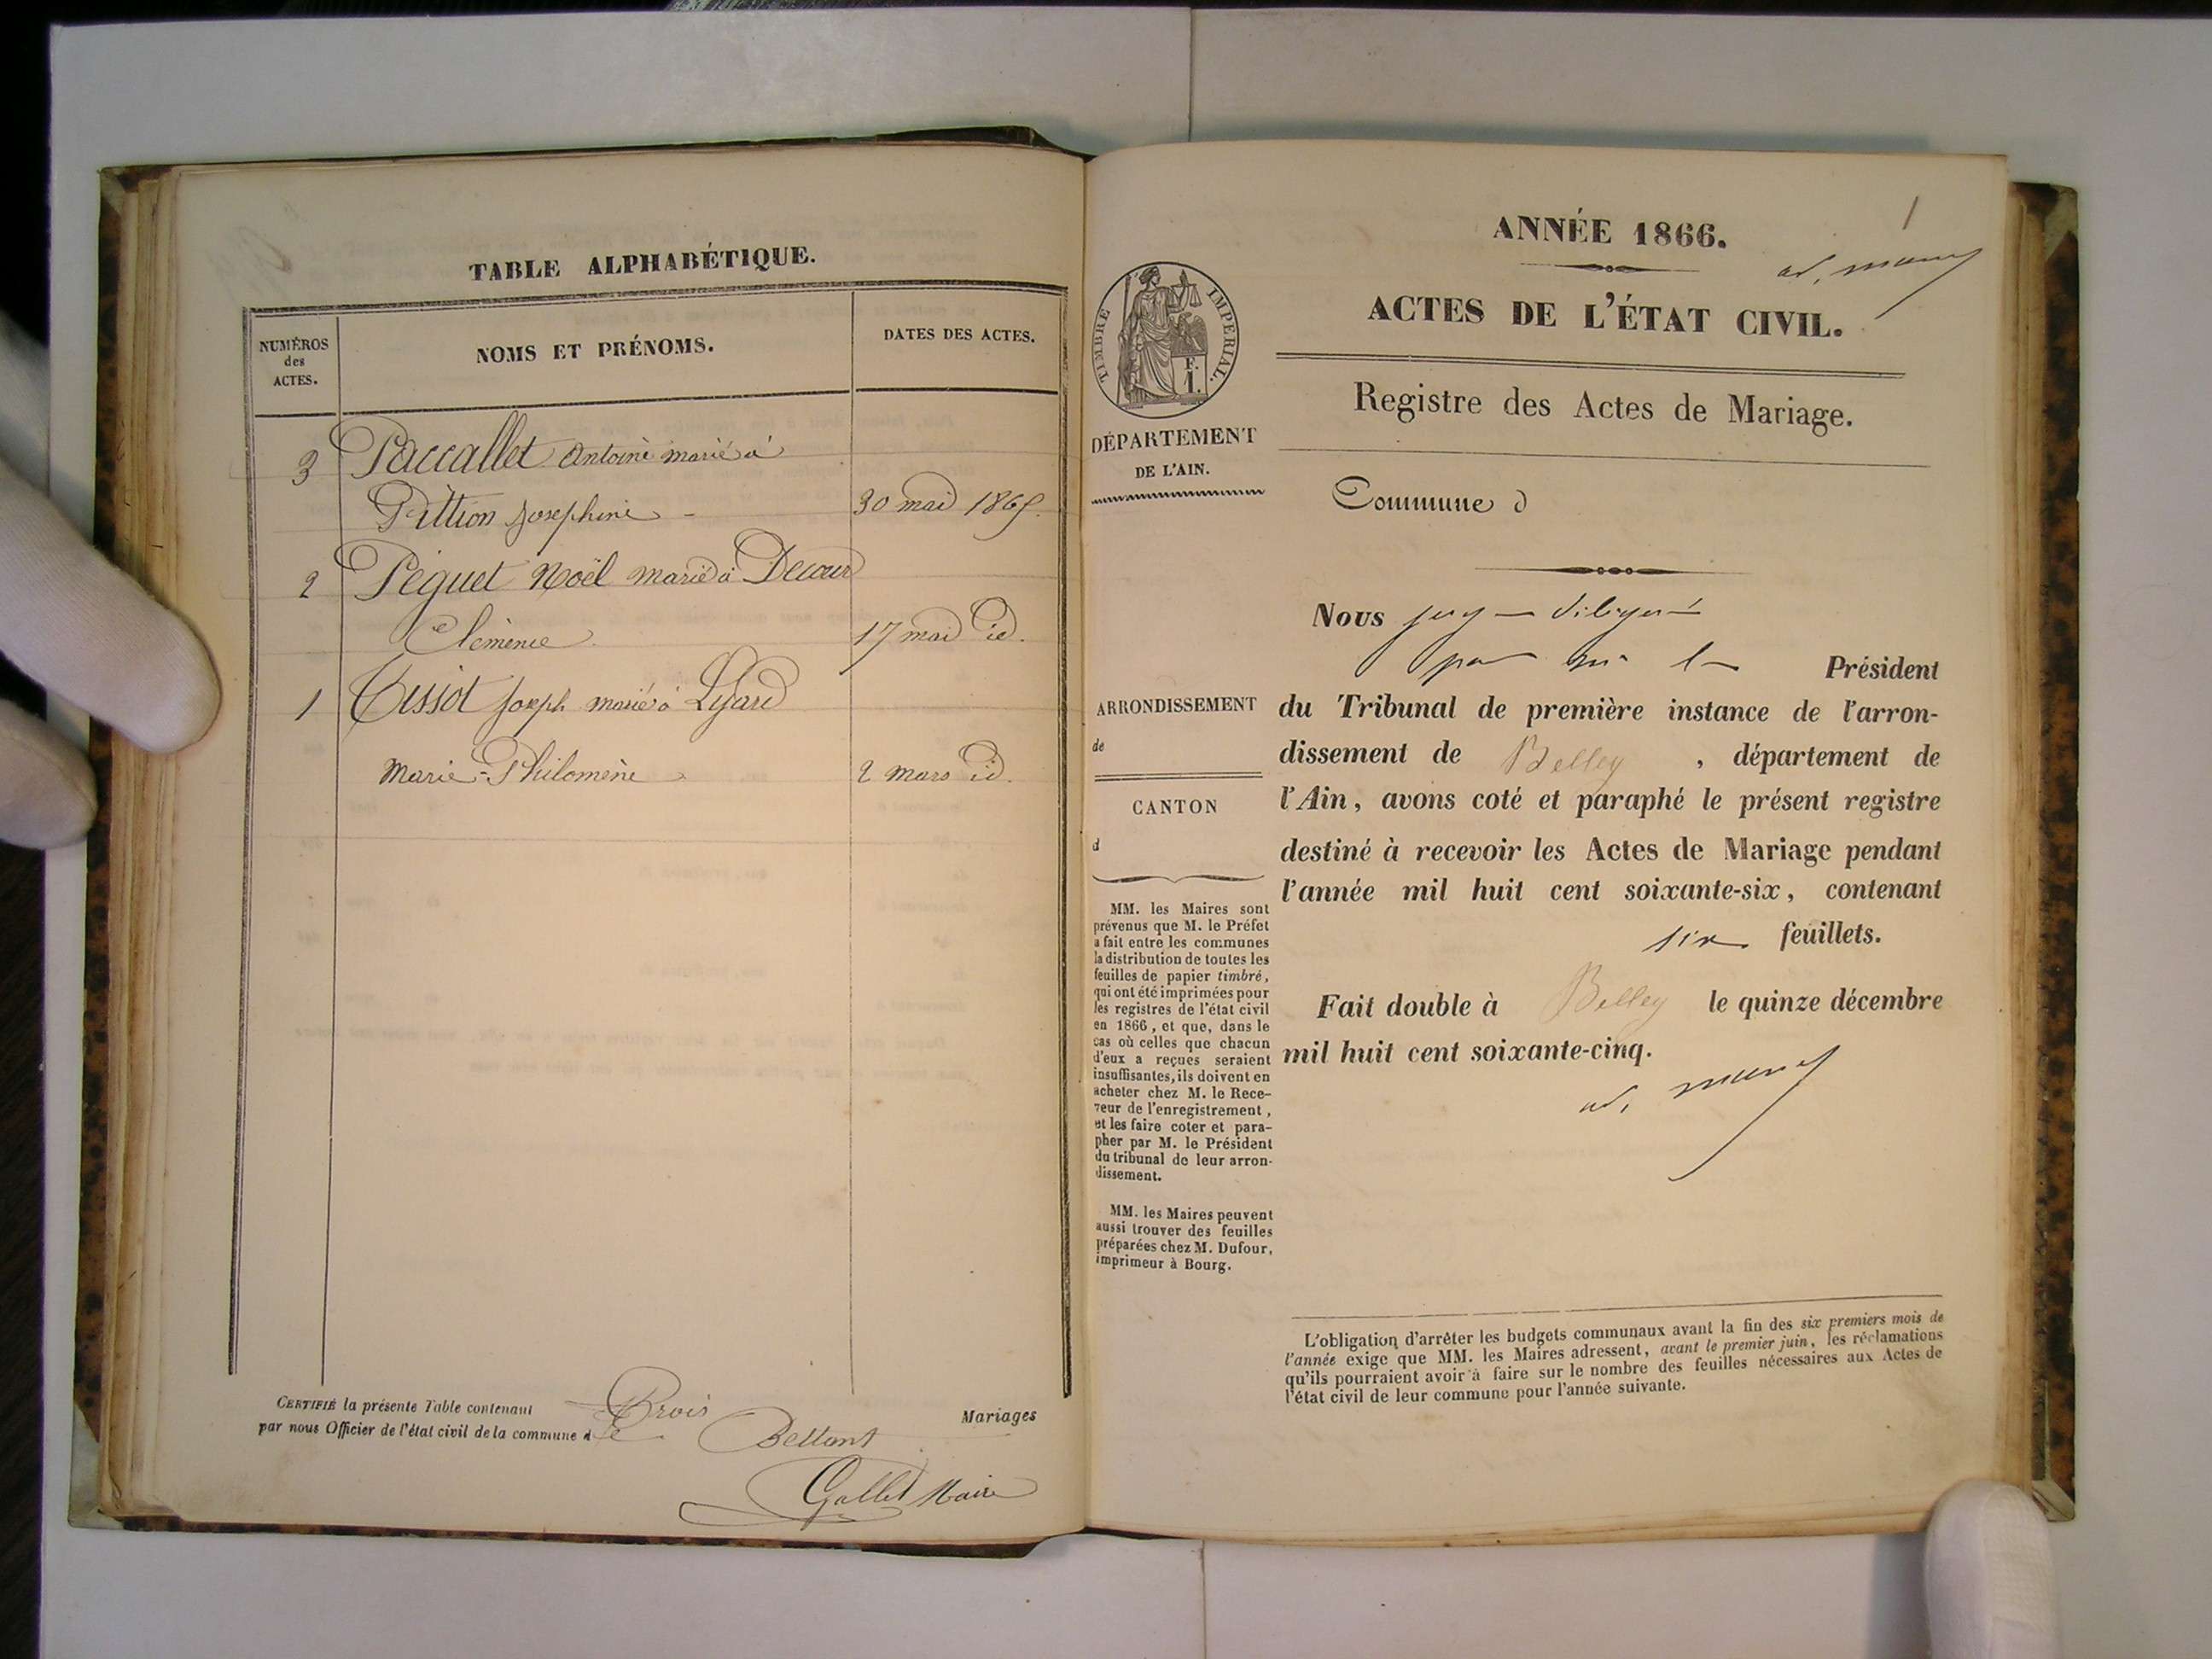 TABLE ALPHABÉTIQUE.
NUMÉROS
des
ACTES.
NOMS ET PRÉNOMS.
DATES DES ACTES.
3 Paccallet Antoine marié à
Pittion Josephine - 30 mai 1865.
2 Peguet Noël marié à Decour
Clémence 17 mai id.
1 Tissot Joseph marié à Lyard
Marie-Philomène 2 mars id.
CERTIFIÉ la présente Table contenant Trois Mariages
par nous Officier de l'état civil de la commune de Bettant
Gallet Maire
1
ANNÉE 1866.
ACTES DE L'ÉTAT CIVIL.
TIMBRE IMPERIAL.
F.
1.
Registre des Actes de Mariage.
DÉPARTEMENT
DE L'AIN.
Commune d
Nous juge délégué
par Mr le Président
ARRONDISSEMENT
de
du Tribunal de première instance de l'arron-
dissement de Belley , département de
l'Ain, avons coté et paraphé le présent registre
destiné à recevoir les Actes de Mariage pendant
l'année mil huit cent soixante-six, contenant
six feuillets.
Fait double à Belley le quinze décembre
mil huit cent soixante-cinq.
CANTON
d
MM. les Maires sont
prévenus que M. le Préfet
a fait entre les communes
la distribution de toutes les
feuilles de papier timbré,
qui ont été imprimées pour
les registres de l'état civil
en 1866, et que, dans le
cas où celles que chacun
d'eux a reçues seraient
insuffisantes, ils doivent en
acheter chez M. le Rece-
veur de l'enregistrement,
et les faire coter et para-
pher par M. le Président
du tribunal de leur arron-
dissement.
MM. les Maires peuvent
aussi trouver des feuilles
préparées chez M. Dufour,
imprimeur à Bourg.
L'obligation d'arrêter les budgets communaux avant la fin des six premiers mois de
l'année exige que MM. les Maires adressent, avant le premier juin, les réclamations
qu'ils pourraient avoir à faire sur le nombre des feuilles nécessaires aux Actes de
l'état civil de leur commune pour l'année suivante.